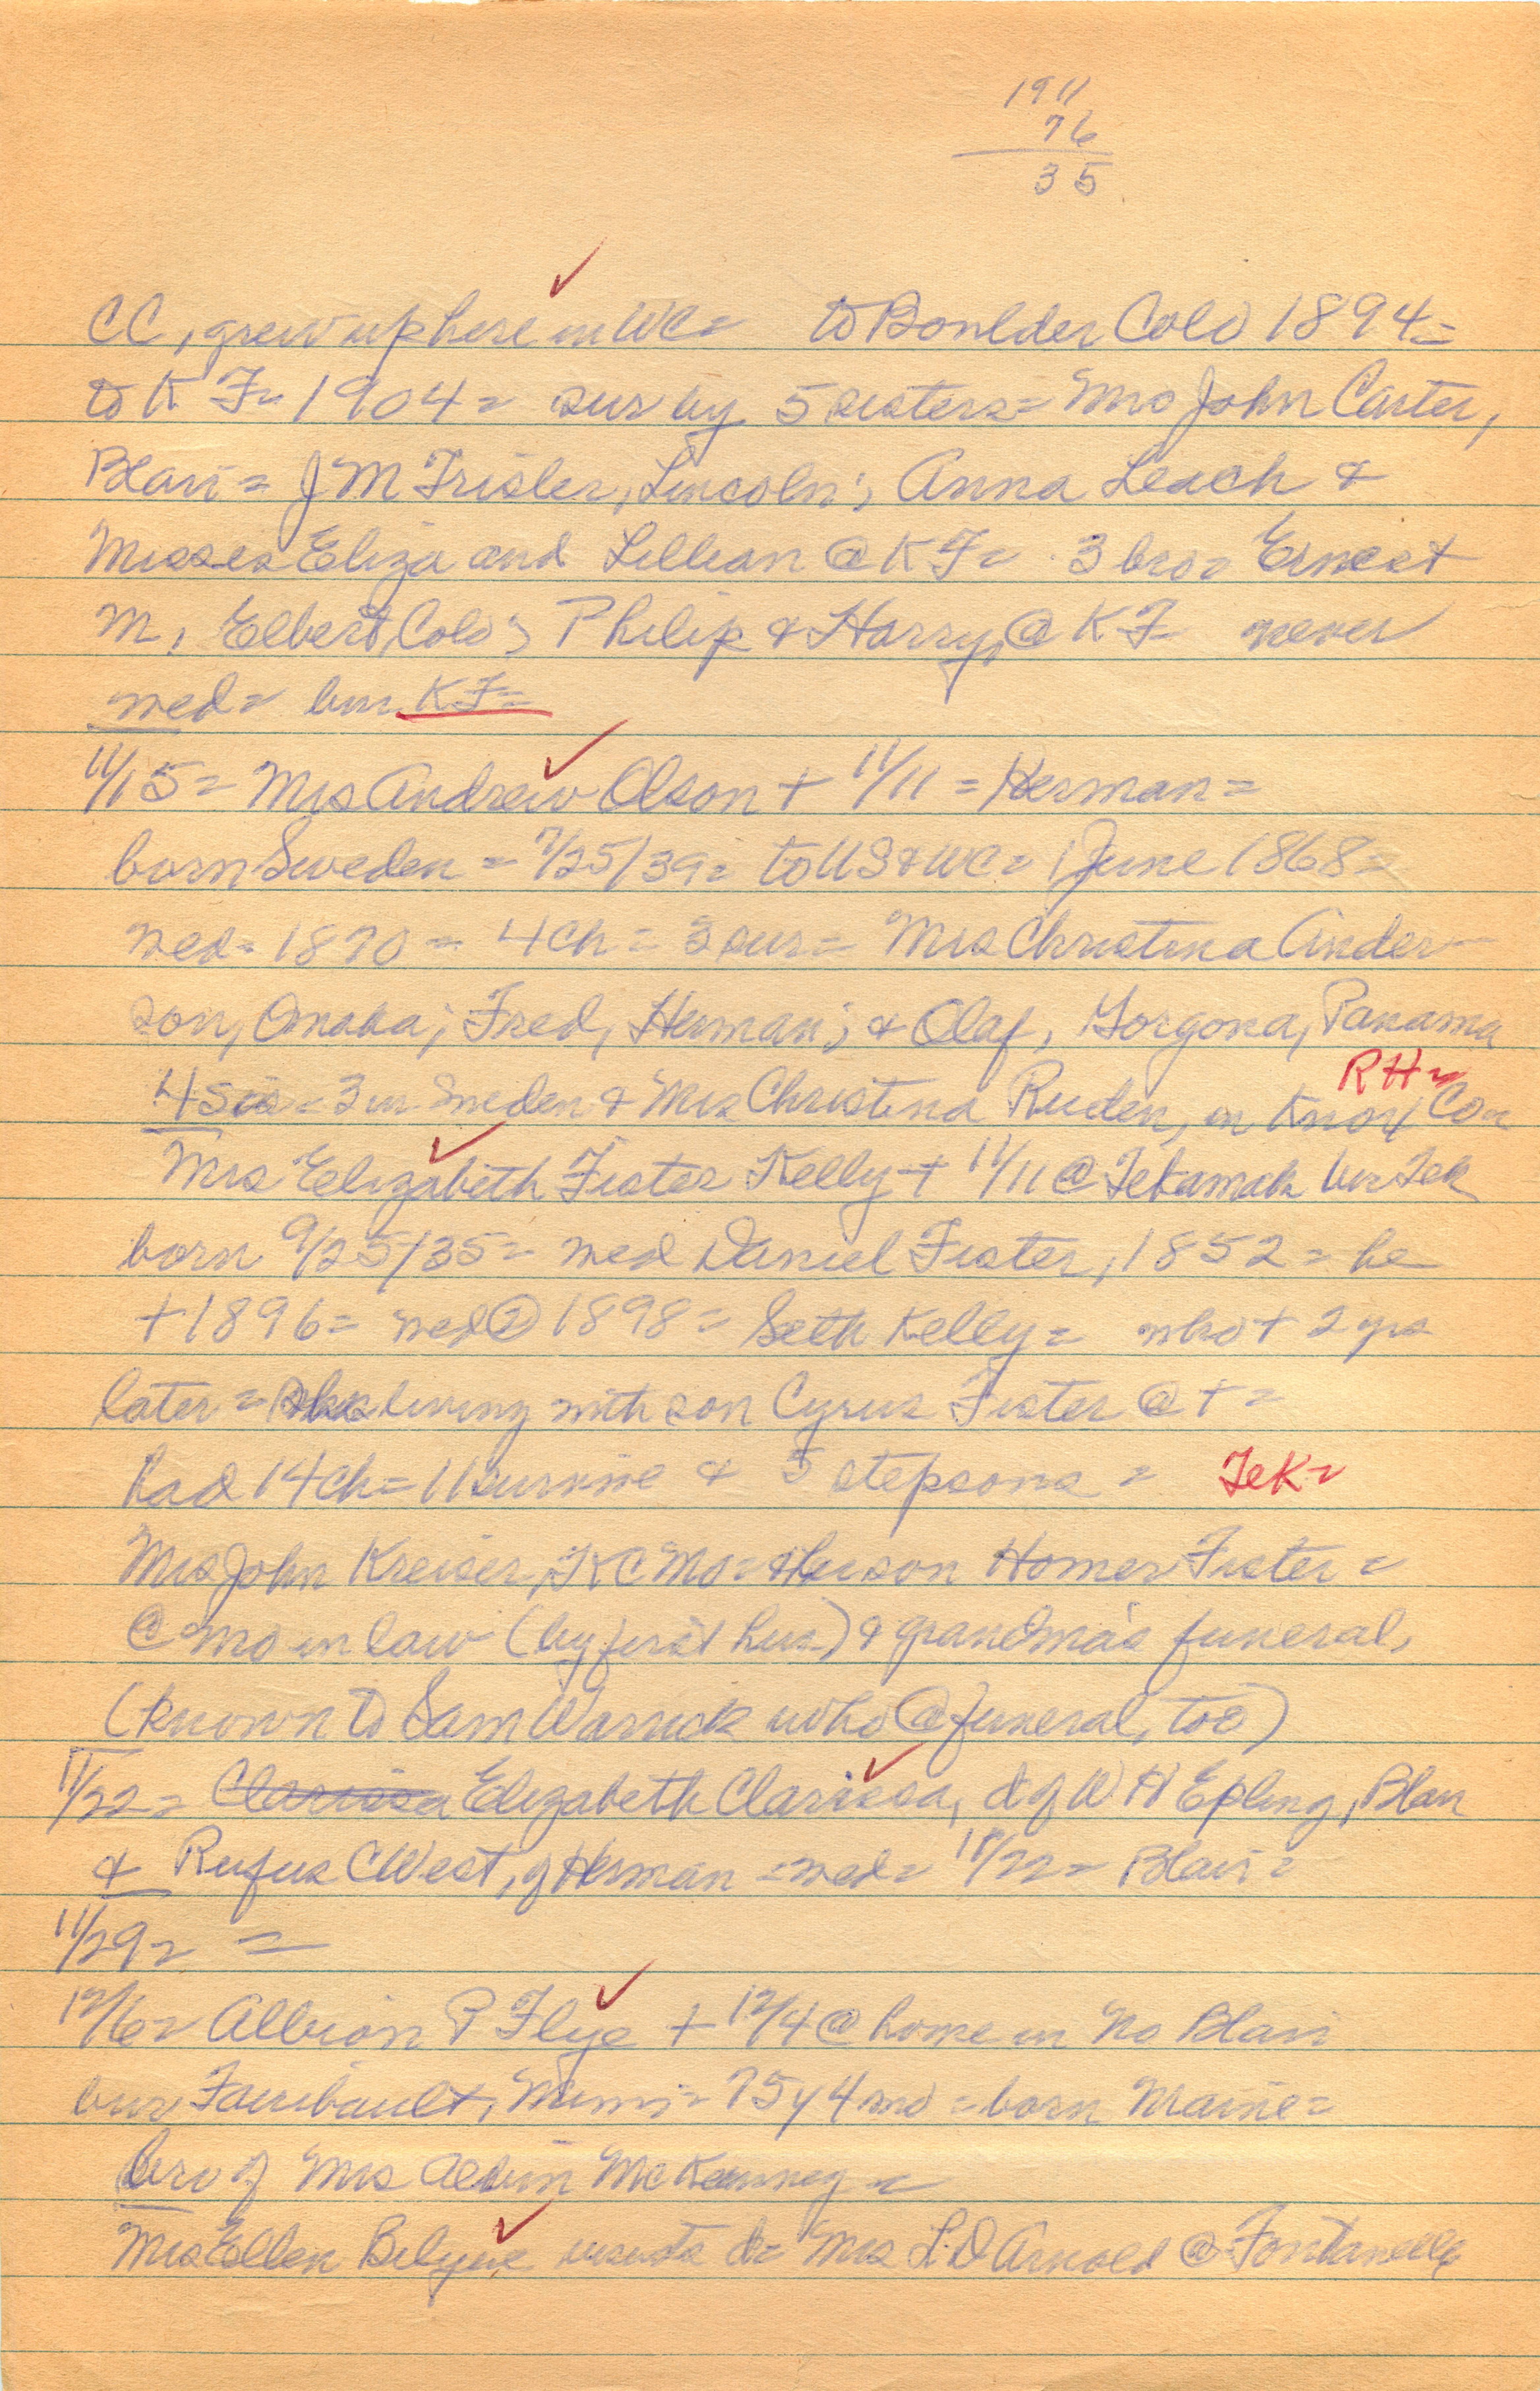 1911
76
35
CC, grew up here in WC = to Boulder Colo 1894 =
to K F = 1904 = sur by 5 sisters = Mrs John Carter,
Blair = J M Trisler, Lincoln; Anna Leach &
Misses Eliza and Lillian @ K F = 3 bro = Ernest
M, Elbert, Colo; Philip & Harry, @ K F never
wed = bur K F =
11/15 = Mrs Andrew Olson + 11/11 = Herman =
born Sweden = 7/25/39 = to US & WC = June 1868 =
wed = 1870 = 4 ch = 3 sur = Mrs Christina Ander-
son, Omaha; Fred, Herman; & Olaf, Gorgona, Panama
RH =
4 sis = 3 in Sweden & Mrs Christina Ruden, in Knox Co =
Mrs Elizabeth Fister Kelly + 11/11 @ Tekamah bur Tek
born 9/25/35 = wed Daniel Fister, 1852 = he
+ 1896 = wed ② 1898 = Seth Kelly = who + 2 yrs
later = living with son Cyrus Fister @ + =
had 14 ch = 11 survive & 5 stepsons = Tek =
Mrs John Kreiser, KC Mo = & son Homer Fister =
@ mo in law (by first hus) & grandma's funeral,
(known to Sam Warrick who @ funeral, too)
11/22 = Clarissa Elizabeth Clarissa, d of W H Epling, Blair
& Rufus C West, of Herman = wed = 11/22 = Blair =
11/29 = =
12/6 = Albion P Flye + 12/4 @ home in No Blair
bur Faribault, Minn = 75 y 4 mo = born Maine =
bro of Mrs Albin McKenney =
Mrs Ellen Belyus visits d = Mrs L D Arnold @ Fontanelle